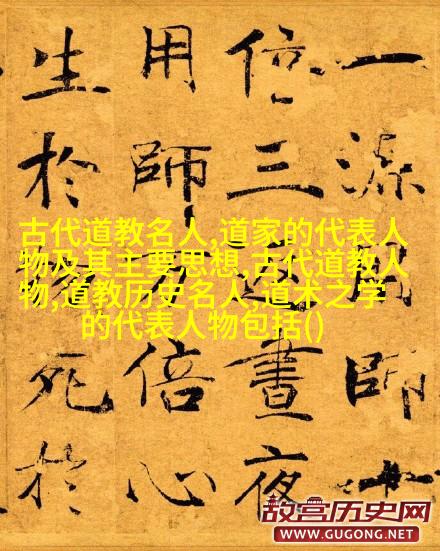 一源用師十
倍三晝夜
用師倍心
生於死於
古代道教名人,道家的代表人
物及其主要思想,古代道教人
物,道教历史名人,道术之学
的代表人物包括()
故宫历史网
WWW.GUGONG.NET